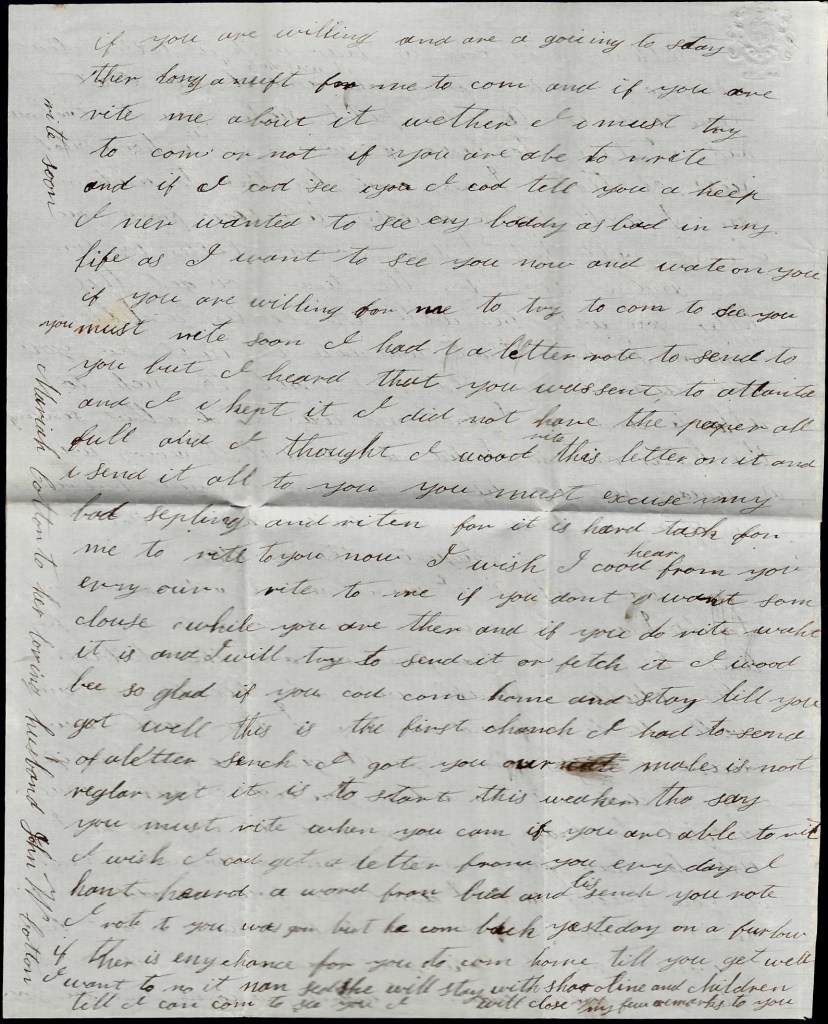 if you are willing and are a goiing to stay
ther long anuft for me to com and if you are
rite me about it wether I must try
to com or not if you are abe to write
and if I cod see you I cod tell you a heep
I ner wanted to see eny boddy as bad in my
life as I want to see you now and wate on you
if you are willing for me to try to com to see you
you must rite soon I had t a letter rote to send to
you but I heard that you was sent to atlanta
and I kept it I did not have the paper all
full and I thought I wood rite this letter on it and
send it all to you you must excuse my
bad sepling and riten for it is hard task for
me to rite to you now I wish I cood hear from you
evry our rite to me if you dont want som
clouse while you are ther and if you do rite waht
it is and I will try to send it or fetch it I wood
bee so glad if you cod com home and stay till you
got well this is the first chanch I had to send
of a letter sench I got you our male is not
reglar yt it is to start this weaker tha say
you must rite when you cam if you are able to rite
I wish I cod get a letter from you evry day I
hant heard a word from bud and sench you rote
I rote t you was gon but he com back yesteday on a furlow
if ther is eny chance for you to com home till you get well
I want to no it nan sed she will stay with sharotine and children
till I can com to see you I will close my few remarks to you
rite soon
Mariah Cotton to her loving husband John W Cotton